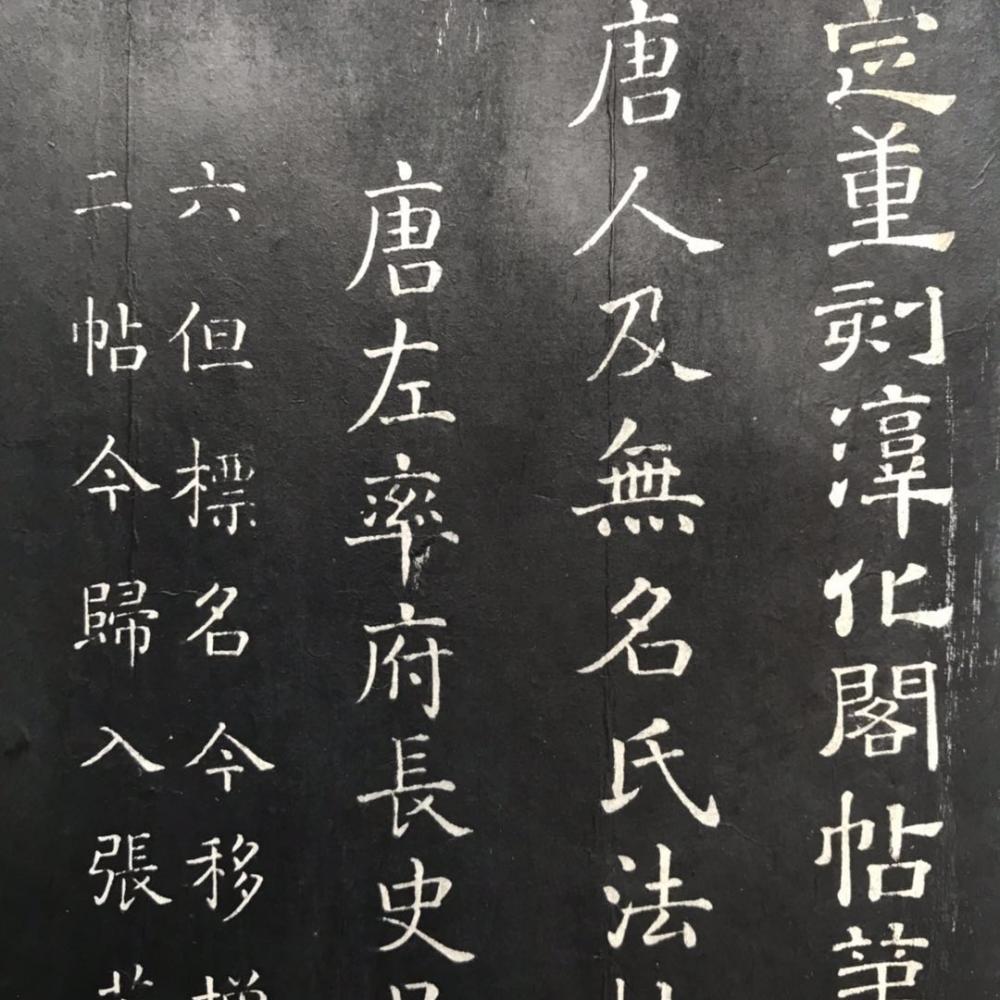 定重刻淳化閣帖第
唐人及無名氏法
唐左率府長史
六但標名今移
二帖今歸入張